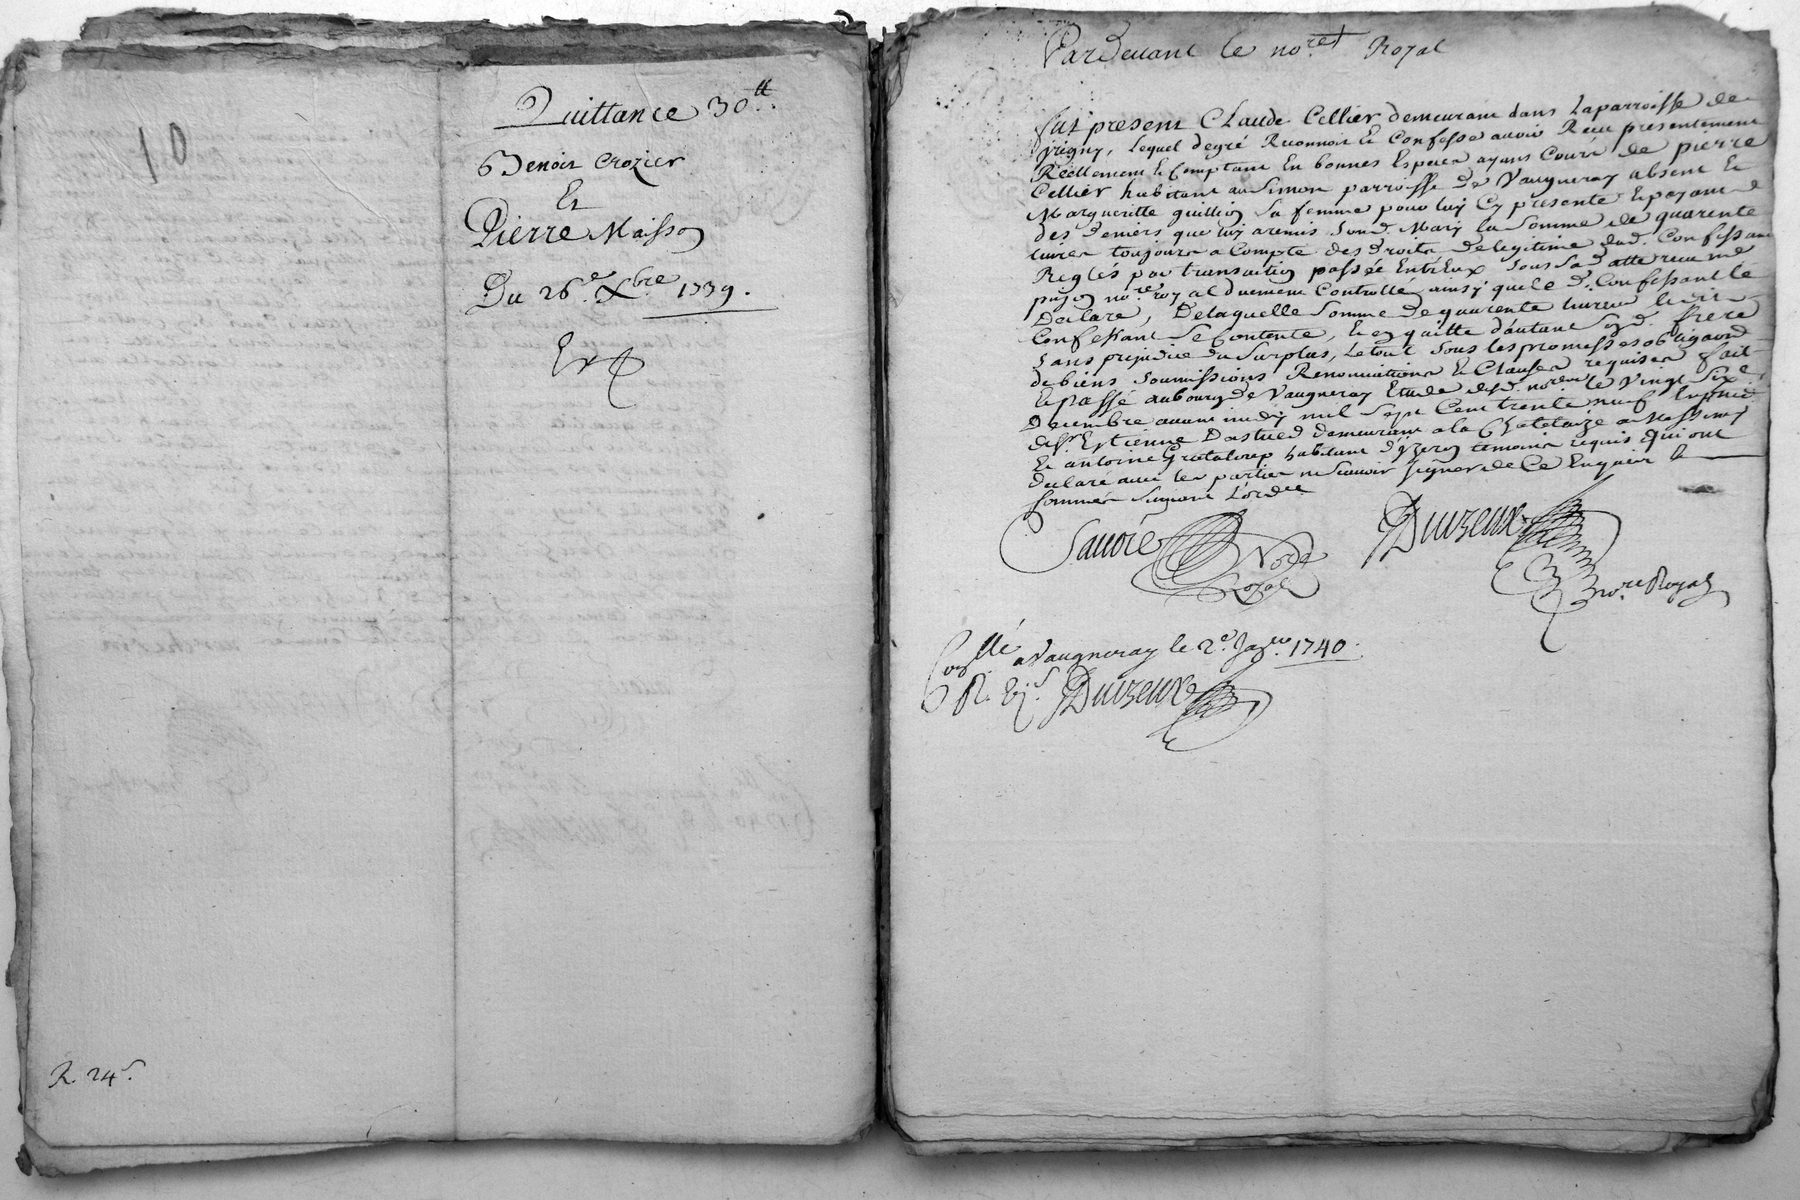 10
Quittance 30ᵗᵗ
Benoit Crozier
Et
Pierre Maisson
Du 26ᵉ Xbre 1739.
R. 24ˢ.
Pardevant le noʳᵉ Royal
fut present Claude Cellier demeurant dans la parroisse de
grigny, lequel degré Reconnoit et Confesse avoir Receu presentement
Réellement et Comptant En bonnes Especes ayans Cours de pierre
Cellier habitant au Simon parroisse de Vaugneray absent et
Margueritte guillion Sa femme pour luy Cy presente et payant
des deniers que luy a remis Sond. Mary la Somme de quarente
livres toujours a Compte des droits de legitime dud. Confessant
Reglés par transaction passée Entr'Eux Sous Sa datte receu me
noʳᵉ royal duement Controllé ainsy que le d. Confessant le
Declare, De laquelle Somme de quarente livres led.
Confessant Se Contente, et en quitte d'autant Sond. frere
Sans prejudice du Surplus, Le tout Sous les promesses obligaons
de biens Soumissions Renonciations et Clauses requises fait
et passé au bourg de Vaugneray Etude dud. noʳᵉ le Vingt Sixᵉ
Decembre avant midy mil Sept Cent trente neuf En pnce
de Sʳ Estienne demeurant a la a Messimy
Et antoine Grataloup habitant d'yzeron temoins requis qui ont
declaré avec les parties ne Scavoir Signer de Ce Enquis et
Sommés Suivant L'ordce
Savoie
Royal
Duvzeux
noʳᵉ Royal
Conllé a Vaugneray le 2ᵉ Janᵉʳ 1740.
R. Duvzeux